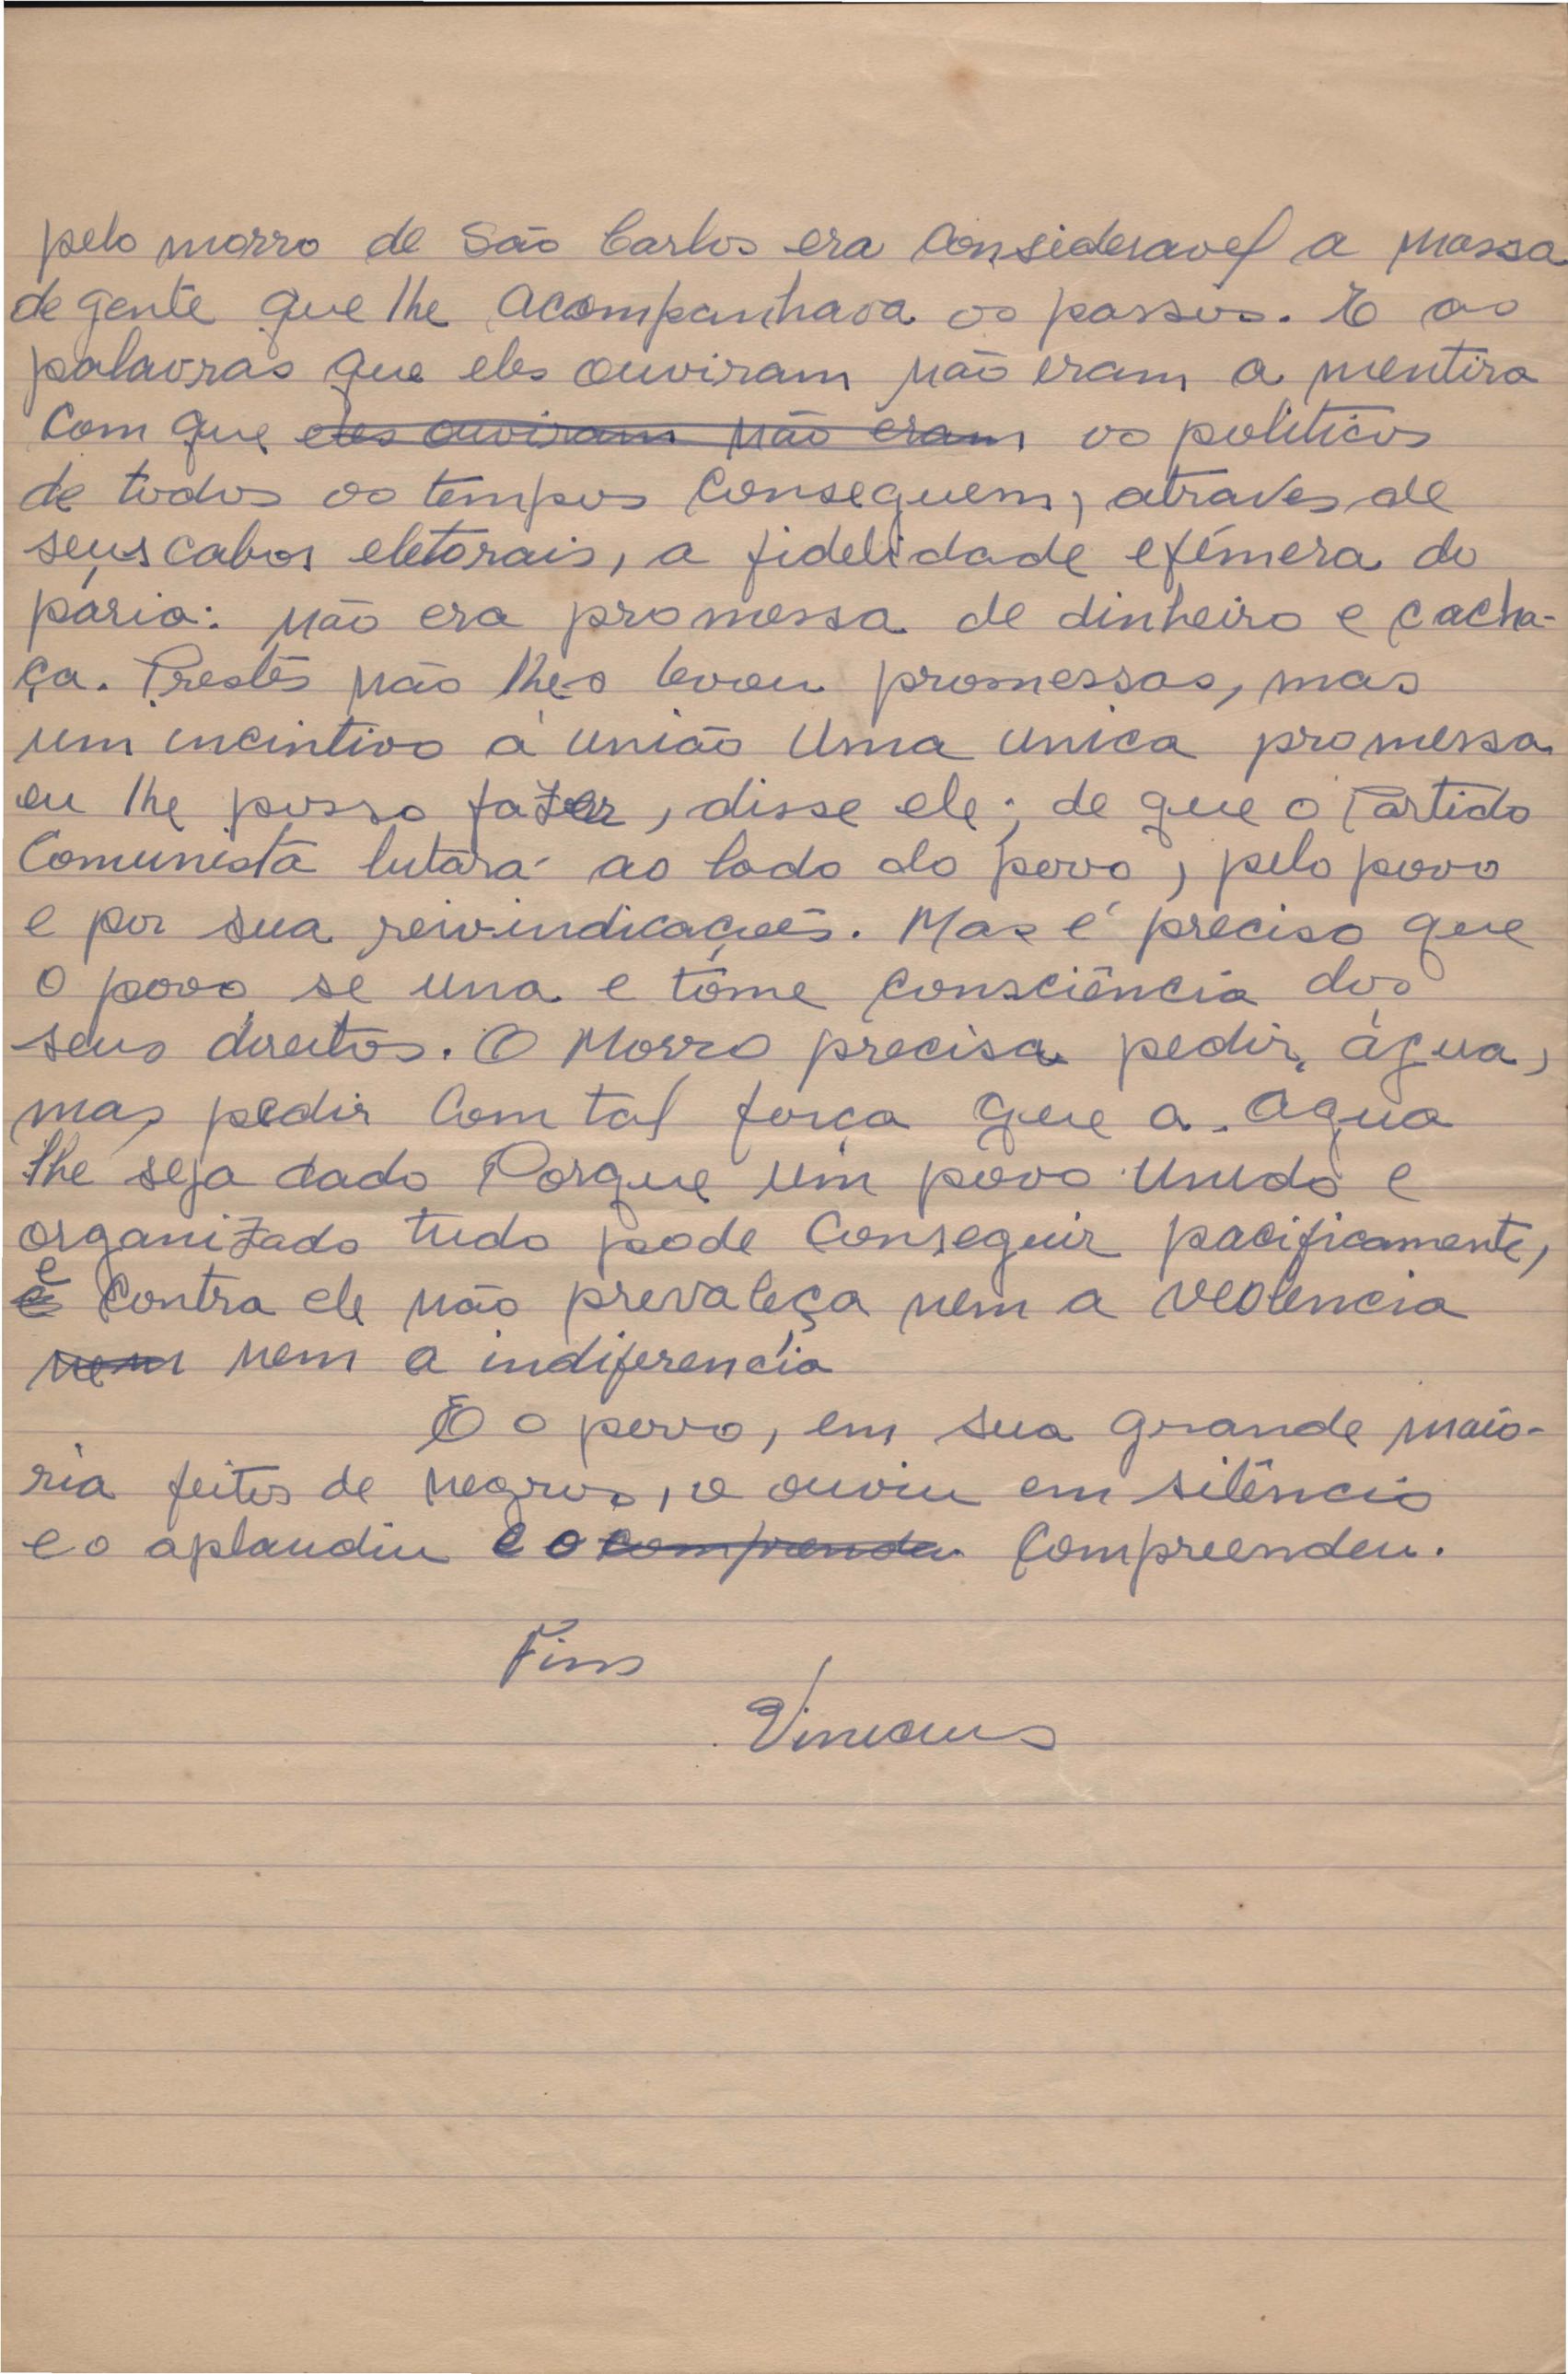 pelo morro de São Carlos era consideravel a massa
de gente que lhe acompanhava os passos. E as
palavras que eles ouviram não eram a mentira
com que eles ouviram não eram os politicos
de todos os tempos conseguem, atraves de
seus cabos eletorais, a fidelidade efêmera do
paria: não era promessa de dinheiro e cacha-
ça. Prestes não lhes levou promessas, mas
um incintivo á união Uma unica promessa
eu lhe posso fazer, disse ele; de que o Partido
Comunista lutará ao lado do povo, pelo povo
e por sua reivindicações. Mas é preciso que
o povo se una e tome consciência dos
seus direitos. O Morro precisa pedir água,
mas pedir com tal força que a agua
lhe seja dado Porque um povo unido e
organizado tudo pode conseguir pacificamente,
e contra ele não prevaleça nem a veolencia
nem nem a indiferencia
E o povo, em sua grande maio-
ria feitos de negros, o ouviu em silêncio
e o aplaudiu e o comprende compreendeu.
Fim
Vinicius